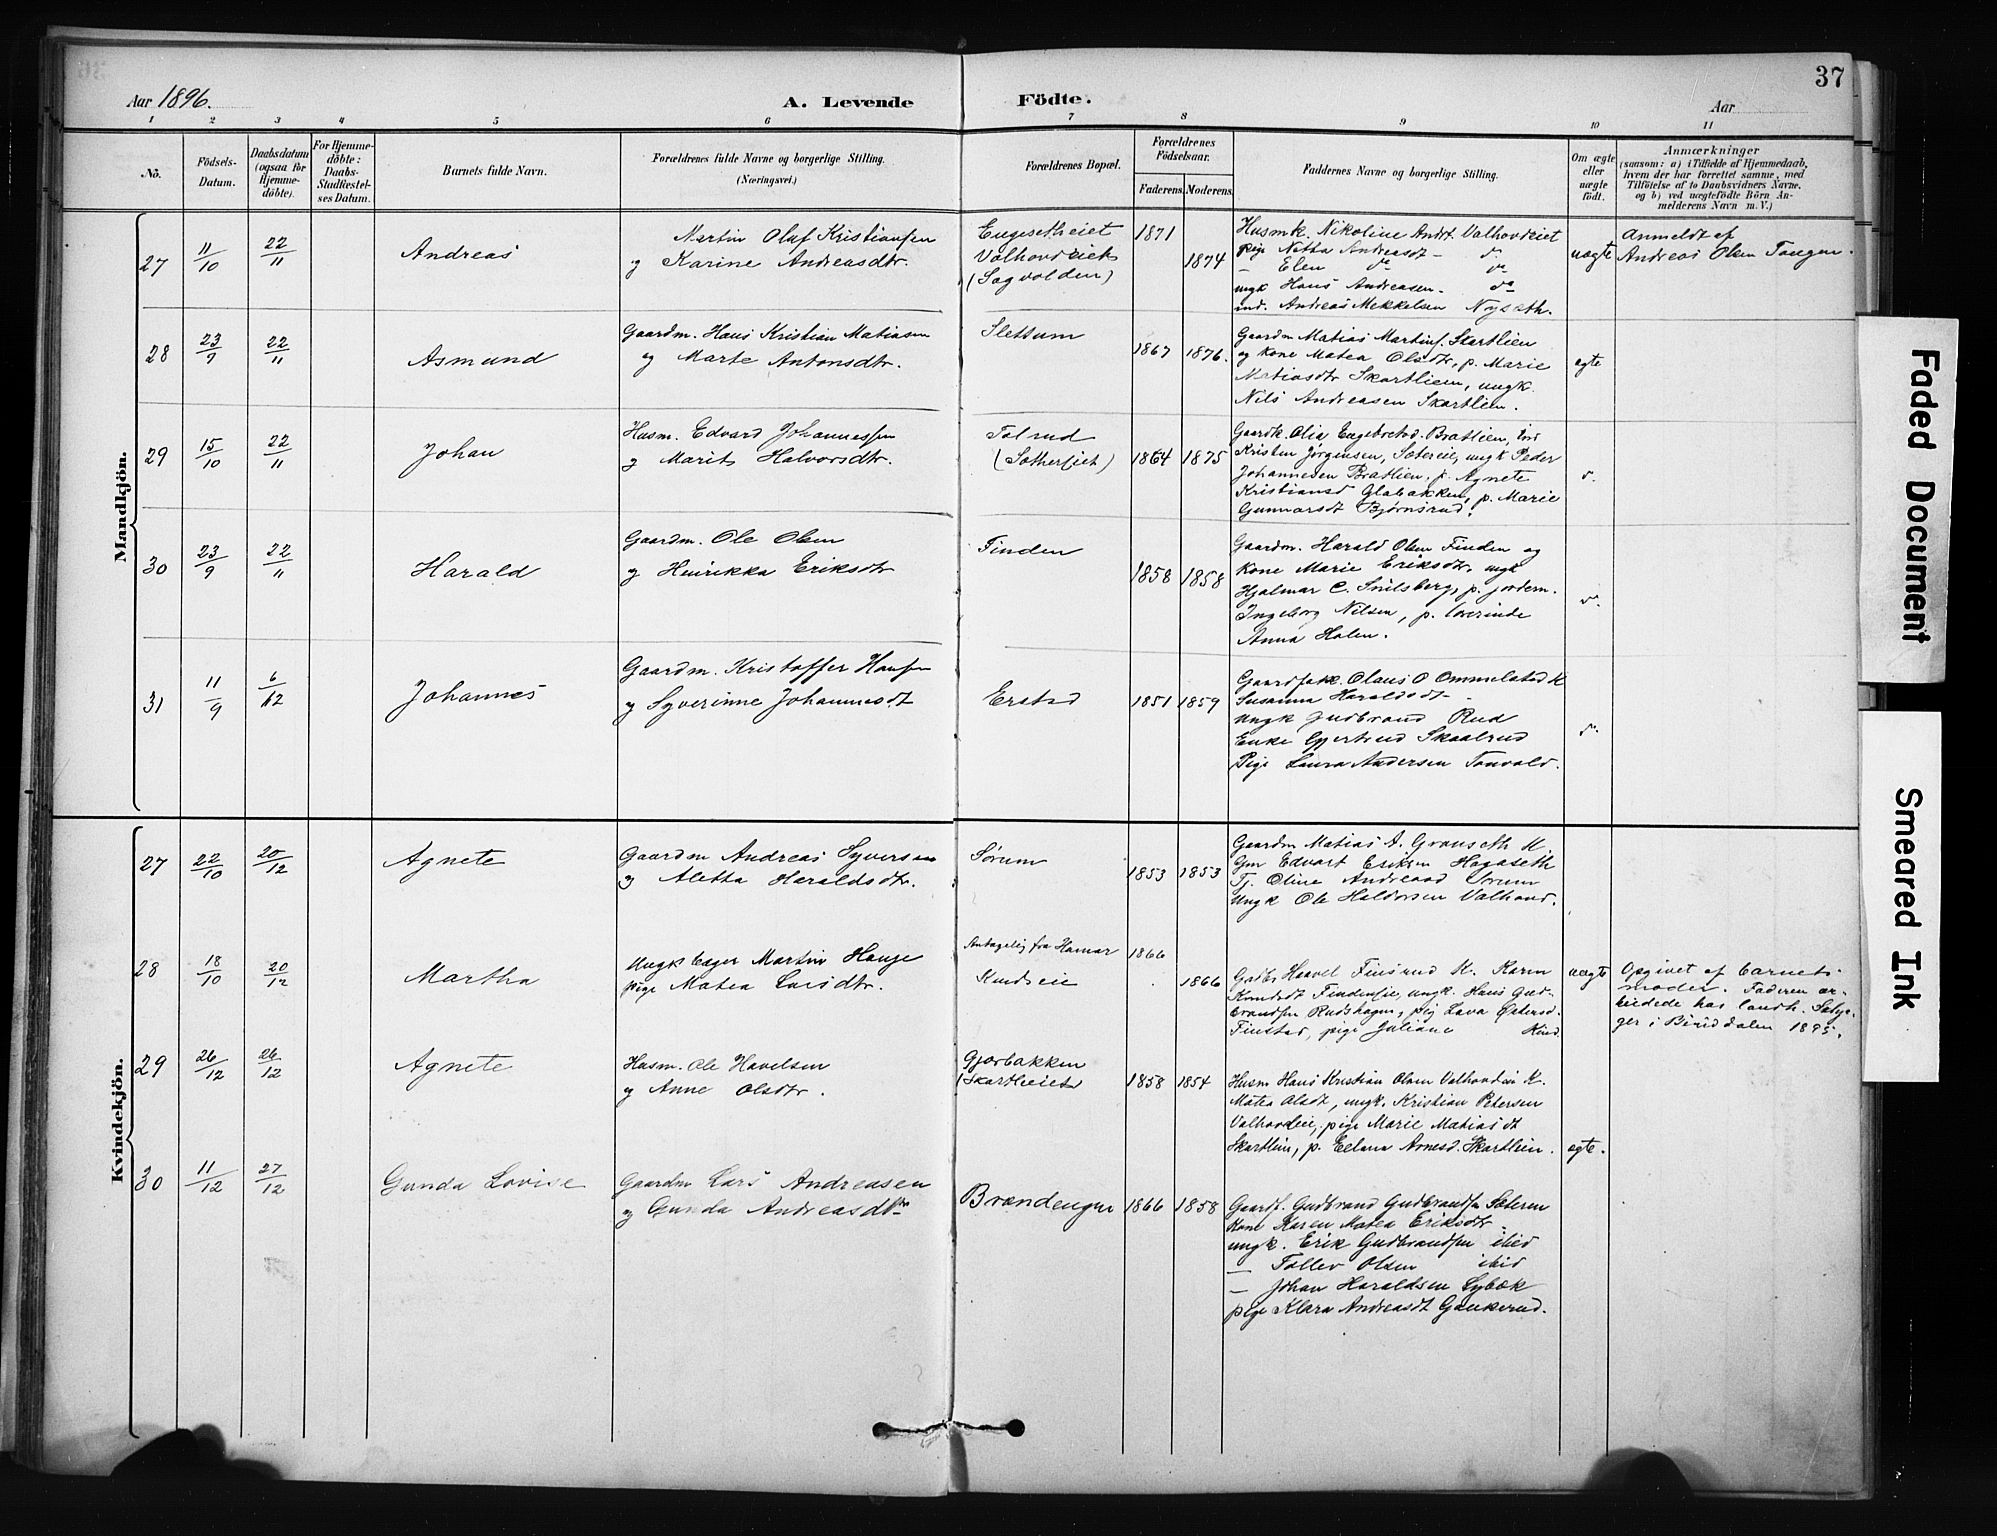 37
Aar 1896.
A. Levende Födte.
Aar
1 2 3 4 5 6 7 8 9 10 11
No.
Födsels-Datum.
Daabsdatum (ogsaa for Hjemme-döbte).
For Hjemme-döbte: Daabs-Stadfæstel-ses Datum.
Barnets fulde Navn.
Forældrenes fulde Navne og borgerlige Stilling.
(Næringsvei.)
Forældrenes Bopæl.
Forældrenes Födselsaar.
Faderens. Moderens.
Faddernes Navne og borgerlige Stilling.
Om ægte eller uægte födt.
Anmærkninger
(saasom: a) i Tilfælde af Hjemmedaab,
hvem der har forrettet samme, med
Tilföielse af to Daabsvidners Navne,
og b) ved uægtefödte Börn An-
melderens Navn m. V.)
Mandkjön.
27 11/10 22/11 Andreas
Martin Oluf Kristiansen
og Karine Andreasdtr.
Engesetheiet
Valhovdeiet
(Sagvolden)
1871 1874
Husmk. Nikoline Andr. Valhovdeiet
pige Netta Andreasdt — do
— Elen do do
ungk Hans Andreasen — do
ind. Andreas Mekkelsen Nyseth.
uægte
Anmeldt af
Andreas Olsen
28 23/9 22/11 Asmund
Gaardm. Hans Kristian Matiasen
og Marte Antonsdtr.
Slettum
1867 1876.
Gaardm Matias Martins. Skartlien
og kone Matea Olsdtr, p. Marie
Matiasdtr Skartlien, ungk.
Nils Andreasen Skartlien.
ægte
29 15/10 22/11 Johan
Husm. Edvard Johannessen
og Marit Halvorsdtr.
1864 1875
Gaardk. Olia Engebretsd. Bratlien,
Kristen Jørgensen, Sætereie, ungk Peder
Johannesen Bratlien, p. Agnete
Kristiansd Glabakken, p. Marie
Gunnarsdt Bjørnsrud.
do.
30 23/9 22/11 Harald
Gaardm. Ole Olsen
og Henrikka Eriksdtr
Finden
1858 1858
Gaardm. Harald Olsen Finden og
Kone Marie Eriksdtr, ungk
Hjalmar C. Snilsberg, p. jordem.
Ingeborg Nilsen, p. lærerinde
Anna Holen.
do.
31 11/9 6/12 Johannes
Gaardm. Kristoffer Hansen
og Syverinne Johannesdt
Erstad
1851 1859
Olaus O Ommelstad K
Susanna Haraldsdt —
Ungk Gudbrand Rud
Enke Gjertrud Skaalrud
Pige Laura Andersen Tonvold.
do.
Kvindekjön.
27 22/10 20/12 Agnete
Gaardm Andreas Syversen
og Aletta Haraldsdtr.
Sørum
1853 1853
Gaardm Matias A. Granseth K.
Gm Edvart Eriksen Hagaseth
Tj. Oline Andreasd Sorum
Ungk Ole Haldorsen Valhovd.
28 18/10 20/12 Martha
Ungk Bager Martin Hauge
pige Matea Larsdtr.
Antagelig fra Hamar
Knudseie
1866 1866
Haavel Finsrud K. Karen
Knudsdt Findenseie, ungk. Hans Gud-
brandsen Rudshagen, pig Lava
Finstad, pige Juliane Rind.
uægte
Opgivet af barnets
moder. Faderen ar-
beidede hos landh. Sølje-
ger i Biriddalen 1895.
29 26/12 26/12 Agnete
Husm. Ole Havelsen
og Anne Olsdtr.
Gjørbakken
Skartlieiet
1858 1854
Husm Hans Kristian Olsen Valhovdeie K.
Matea Olsdt, ungk. Kristian Petersen
Valhovdeie, pige Marie Matiasdt
Skartlien, p. Arnesd. Skartlien.
ægte.
30 11/12 27/12 Gunda Lovise
Gaardm Lars Andreasen
og Gunda Andreasdtr
Brændengen
1866 1858
Gaardf. Gudbrand Gudbrandsen Sæteren
Kone Karen Matea Eriksdtr —
ungk. Erik Gudbrandsen ibid
— Tollev Olsen ibid
— Johan Haraldsen Lybæk
pige Klara Andreasdt Gaukerud.
Faded Document
Smeared Ink